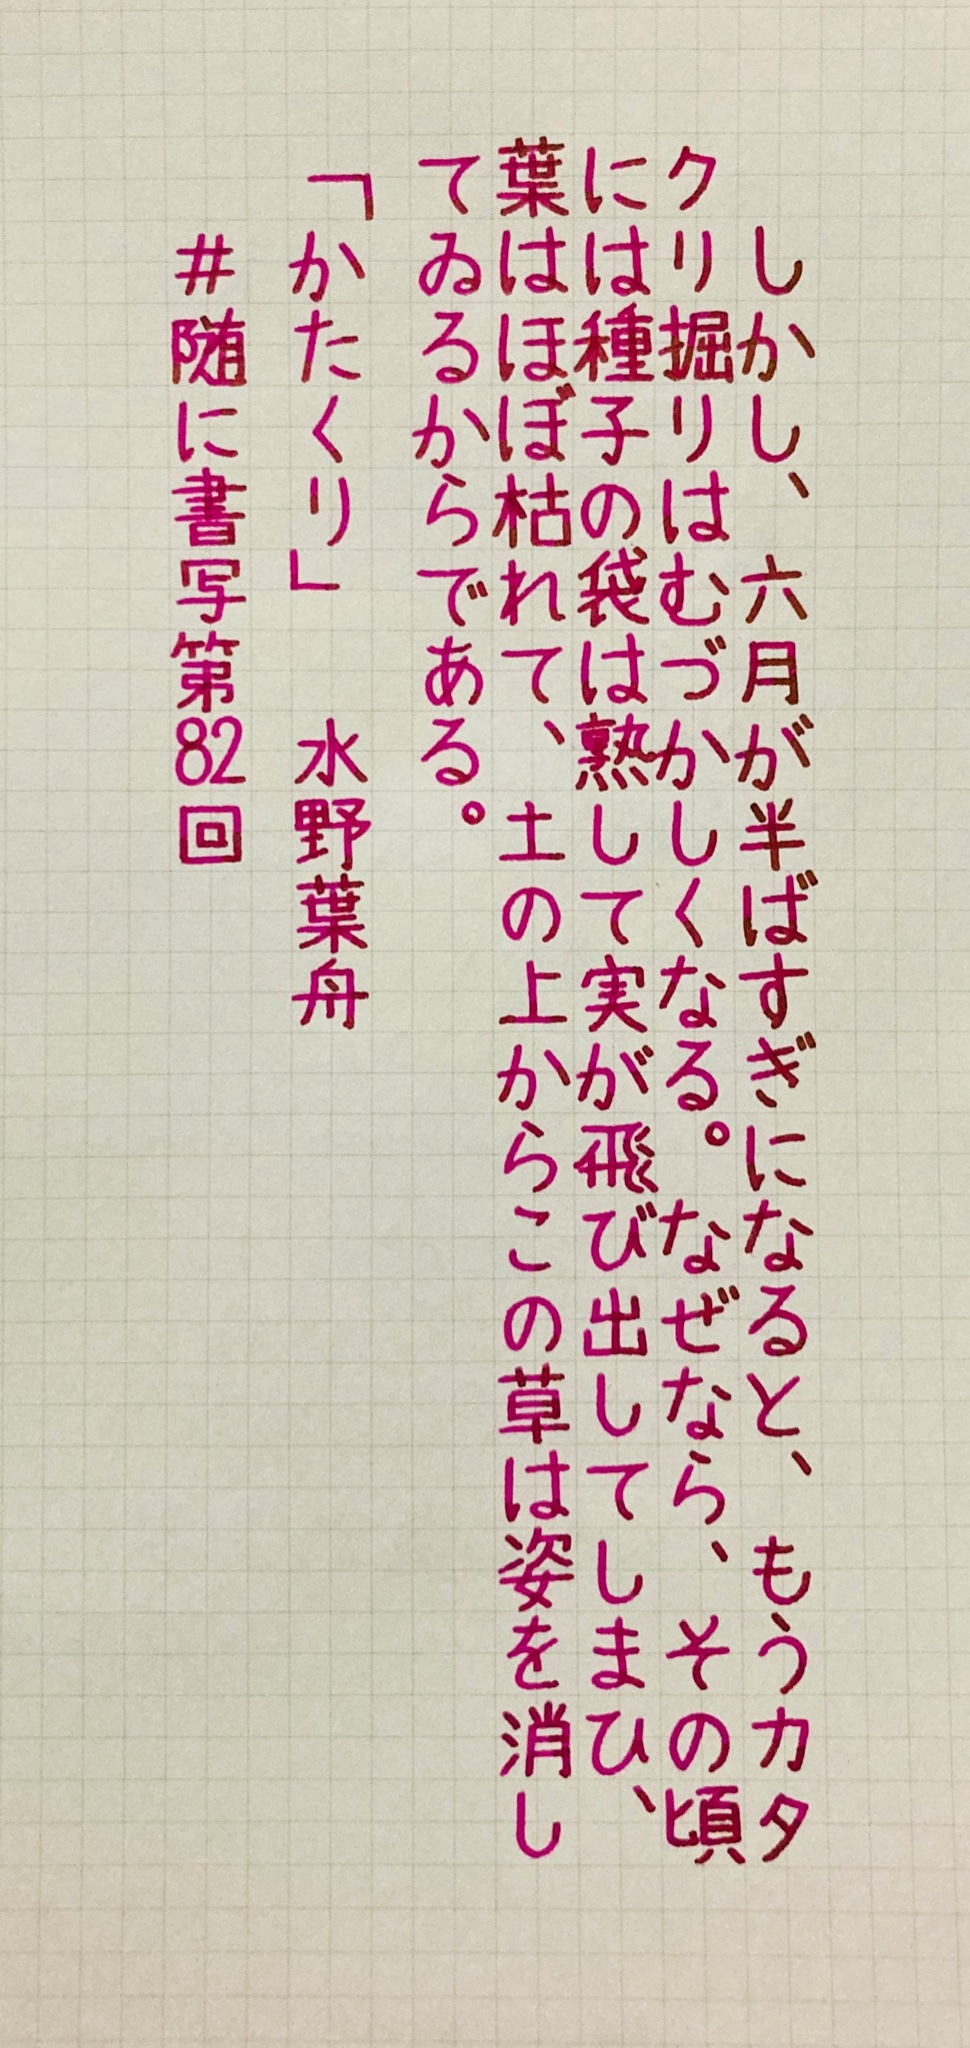 しかし、六月が半ばすぎになると、もうカタ
クリ掘りはむづかしくなる。なぜなら、その頃
には種子の袋は熟して実が飛び出してしまひ、
葉はほぼ枯れて、土の上からこの草は姿を消し
てゐるからである。
「かたくり」　水野葉舟
＃随に書写第82回